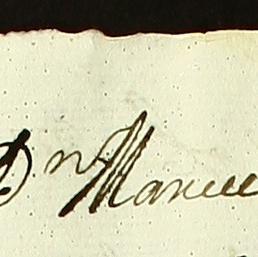 Dn Manuel